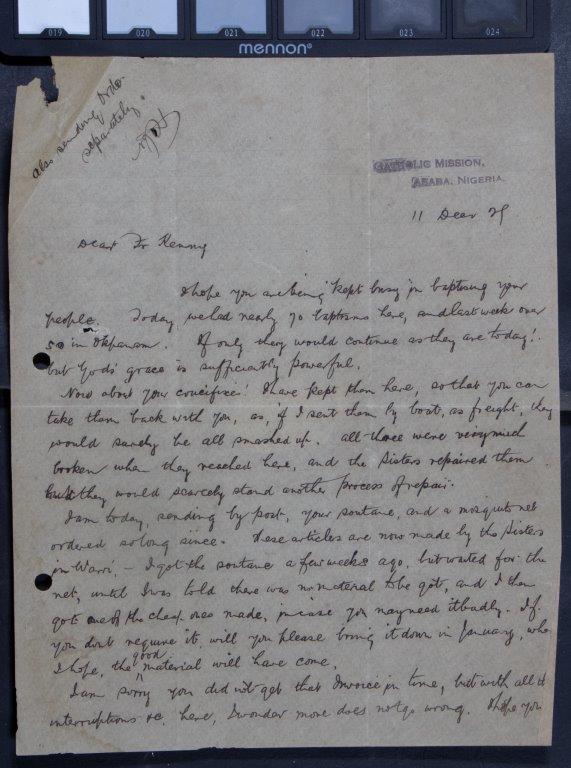 019 020 021 022 023 024
mennon®
also sending Ordo
separately.
CATHOLIC MISSION,
ASABA, NIGERIA.
11 Decr 29
Dear Fr Kenny
I hope you are being kept busy in baptising your
people. Today we had nearly 70 baptisms here, and last week over
50 in Okpanam. If only they would continue as they are today!
but God's grace is sufficiently powerful.
Now about your crucifixes! I have kept them here, so that you can
take them back with you, as, if I sent them by boat, as freight, they
would surely be all smashed up. All three were very much
broken when they reached here, and the Sisters repaired them
but they would scarcely stand another process of repair.
I am today, sending by post, your soutane, and a mosquito net
ordered so long since. These articles are now made by the Sisters
in Warri, – I got the soutane a few weeks ago, but waited for the
net, until I was told there was no material to be got, and I then
got one of the cheap ones made, in case you may need it badly. If
you dont require it, will you please bring it down in January, when
I hope, the good material will have come.
I am sorry you did not get that Invoice in time, but with all
interruptions &c, here, I wonder more does not go wrong. I hope you